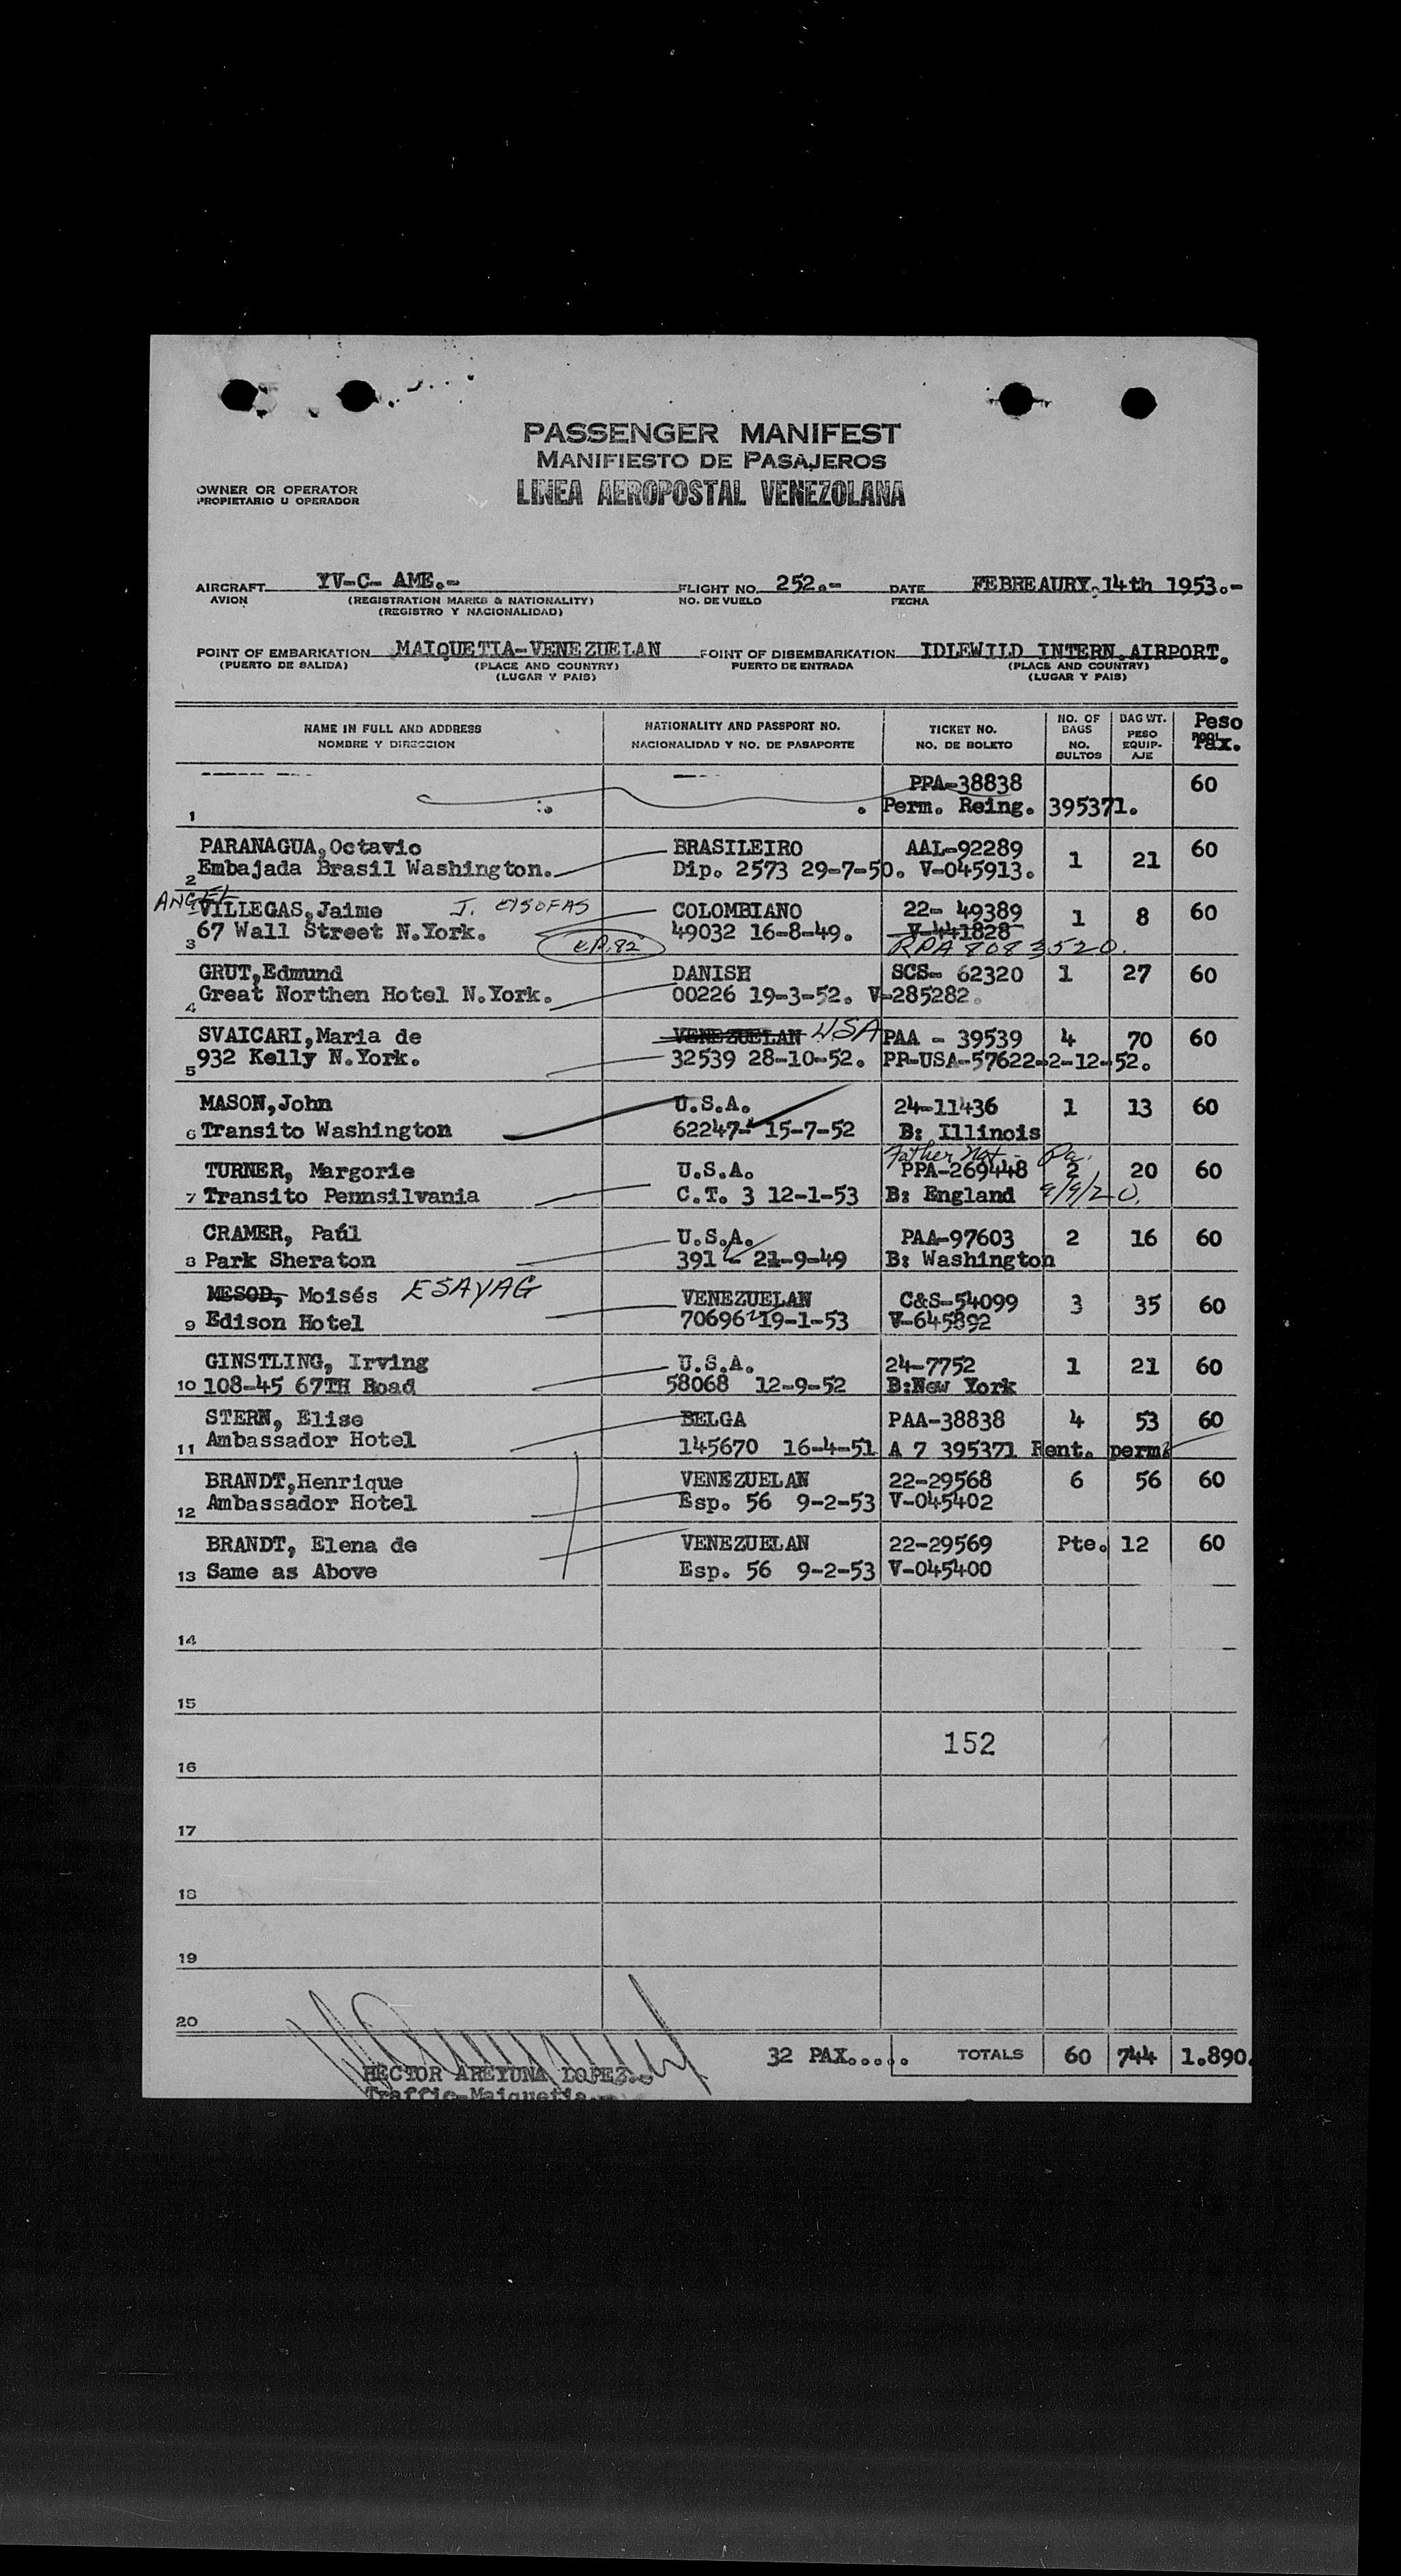 PASSENGER MANIFEST
MANIFIESTO DE PASAJEROS
OWNER OR OPERATOR
PROPIETARIO U OPERADOR
LINEA AEROPOSTAL VENEZOLANA
AIRCRAFT YV-C- AME.- FLIGHT NO. 252.- DATE FEBREAURY,14th 1953.-
AVION (REGISTRATION MARKS & NATIONALITY) NO. DE VUELO FECHA
(REGISTRO Y NACIONALIDAD)
POINT OF EMBARKATION MAIQUETIA-VENEZUELAN POINT OF DISEMBARKATION IDLEWILD INTERN.AIRPORT.
(PUERTO DE SALIDA) (PLACE AND COUNTRY) PUERTO DE ENTRADA (PLACE AND COUNTRY)
(LUGAR Y PAIS) (LUGAR Y PAIS)
NAME IN FULL AND ADDRESS NATIONALITY AND PASSPORT NO. TICKET NO. NO. OF BAGS BAG WT. Peso
NOMBRE Y DIRECCION NACIONALIDAD Y NO. DE PASAPORTE NO. DE BOLETO NO. BULTOS PESO EQUIP-AJE Pax.
PPA-38838 60
1 Perm. Reing. 395371.
PARANAGUA,Octavio BRASILEIRO AAL-92289 1 21 60
2 Embajada Brasil Washington. Dip. 2573 29-7-50. V-045913.
ANGEL
VILLEGAS,Jaime J. COLOMBIANO 22- 49389 1 8 60
3 67 Wall Street N.York. 49032 16-8-49. V-441828
RPA 8083520.
GRUT,Edmund DANISH SCS- 62320 1 27 60
4 Great Northen Hotel N.York. 00226 19-3-52. V-285282.
SVAICARI,Maria de VENEZUELAN USA PAA - 39539 4 70 60
5 932 Kelly N.York. 32539 28-10-52. PP-USA-57622-2-12-52.
MASON,John U.S.A. 24-11436 1 13 60
6 Transito Washington 62247- 15-7-52 B: Illinois
Father Nat - Pa.
TURNER, Margorie U.S.A. PPA-269448 2 20 60
7 Transito Pennsilvania C.T. 3 12-1-53 B: England 9/9/20.
CRAMER, Paúl U.S.A. PAA-97603 2 16 60
8 Park Sheraton 391 - 21-9-49 B: Washington
MESOD, Moisés ESAYAG VENEZUELAN C&S-54099 3 35 60
9 Edison Hotel 70696 19-1-53 V-645892
GINSTLING, Irving U.S.A. 24-7752 1 21 60
10 108-45 67TH Road 58068 12-9-52 B:New York
STERN, Elise BELGA PAA-38838 4 53 60
11 Ambassador Hotel 145670 16-4-51 A 7 395371 Rent. perm.
BRANDT,Henrique VENEZUELAN 22-29568 6 56 60
12 Ambassador Hotel Esp. 56 9-2-53 V-045402
BRANDT, Elena de VENEZUELAN 22-29569 Pte. 12 60
13 Same as Above Esp. 56 9-2-53 V-045400
14
15
16 152
17
18
19
20
32 PAX..... TOTALS 60 744 1.890.
HECTOR AREYUNA LOPEZ.-
Traffic-Maiquetia.-